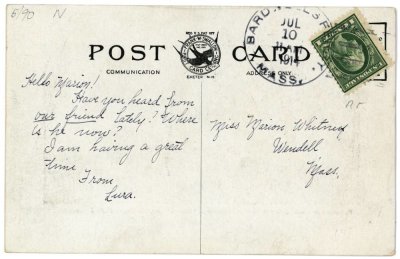 6/90 N
POST CARD
COMMUNICATION
ADDRESS ONLY
EXETER N.H.
JUL
10
191
MASS.
Hello Marion!
Have you heard from
our friend lately? Where
is he now?
I am having a great
time
From
Lura.
Miss Marion Whitney
Wendell
Mass.